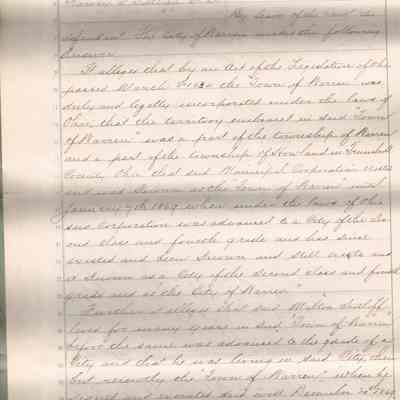 By leave of the Court the
defendant The City of Warren makes the following
Answer
It alleges that by an Act of the Legislature of Ohio
passed March 3d 1834 the "Town of Warren" was
duly and legally incorporated under the laws of
Ohio, that the territory embraced in said "Town
of Warren" was a part of the township of Warren
and a part of the township of Howland in Trumbull
County Ohio that said Municipal Corporation existed
and was known as the "Town of Warren" until
January 1869 when under the laws of Ohio
said Corporation was advanced to a City of the Sec-
ond class and fourth grade and has since
existed and been known and still exists and
is known as a City of the Second class and fourth
grade and as the "City of Warren"
Further it alleges that said Milton Sutliff
lived for many years in said "Town of Warren"
before the same was advanced to the grade of a
City and that he was living in said City, then
but recently the "Town of Warren" when he
signed and executed said will December